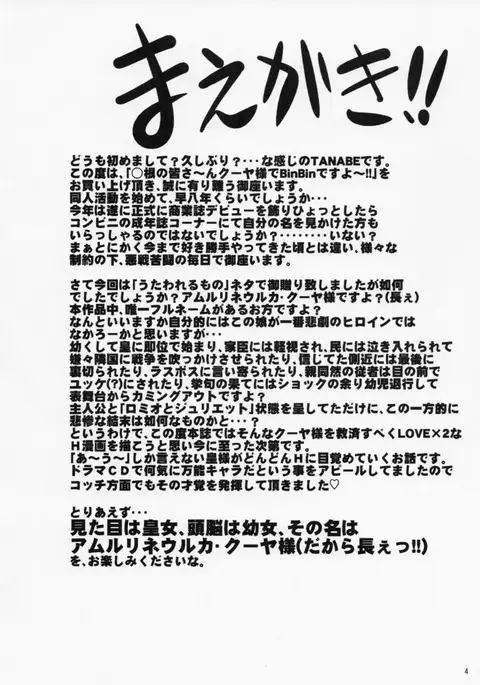 まえがき!!
どうも初めまして？久しぶり？･･･な感じのTANABEです。
この度は、「○根の皆さ～んクーヤ様でBinBinですよ～!!」を
お買い上げ頂き、誠に有り難う御座います。
同人活動を始めて、早八年くらいでしょうか･･･
今年は遂に正式に商業誌デビューを飾りひょっとしたら
コンビニの成年誌コーナーにて自分の名を見かけた方も
いらっしゃるのではないでしょうか？･････････いない？
まぁとにかく今まで好き勝手やってきた頃とは違い、様々な
制約の下、悪戦苦闘の毎日で御座います。
さて今回は「うたわれるもの」ネタで御贈り致しましたが如何
でしたでしょうか？アムルリネウルカ･クーヤ様ですよ？(長ぇ)
本作品中、唯一フルネームがあるお方ですよ？
なんといいますか自分的にはこの娘が一番悲劇のヒロインでは
なかろーかと思いますが･･･
幼くして皇に即位で始まり、家臣には軽視され、民には泣き入れられて
嫌々隣国に戦争を吹っかけさせられたり、信じてた側近には最後に
裏切られたり、ラスボスに言い寄られたり、親同然の従者は目の前で
ユッケ(?)にされたり、挙句の果てにはショックの余り幼児退行して
表舞台からカミングアウトですよ？
主人公と「ロミオとジュリエット」状態を呈してただけに、この一方的に
悲惨な結末は如何なものかと･･･？
というわけで、この度本誌ではそんなクーヤ様を救済すべくLOVE×2な
H漫画を描こうと思い今に至った次第です。
「あ～う～」しか言えない皇様がどんどんHに目覚めていくお話です。
ドラマCDで何気に万能キャラだという事をアピールしてましたので
コッチ方面でもその才覚を発揮して頂きました♡
とりあえず･･･
見た目は皇女、頭脳は幼女、その名は
アムルリネウルカ･クーヤ様(だから長ぇっ!!)
を、お楽しみくださいな。
4